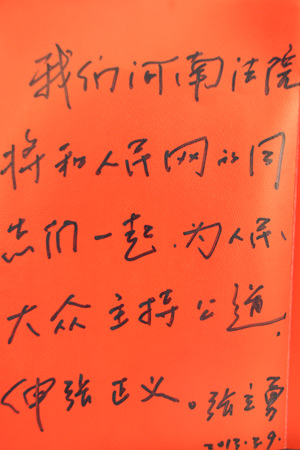 我们河南法院
将和人民网的同
志们一起、为人民、
大众主持公道,
伸张正义。张立勇
2013.2.9.